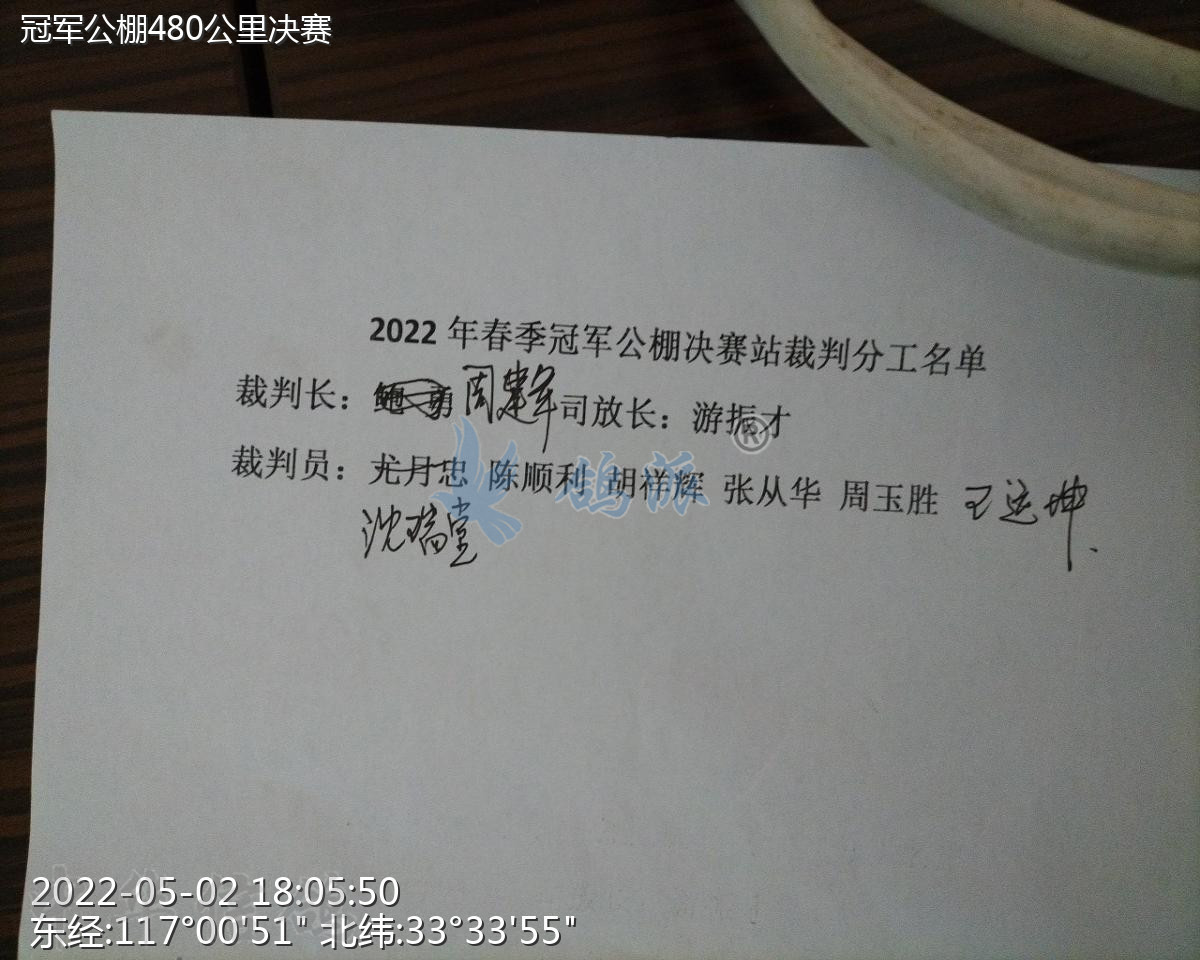 冠军公棚480公里决赛
2022年春季冠军公棚决赛站裁判分工名单
裁判长：鲍 勇 周建军 司放长：游振才
裁判员：尤月忠 陈顺利 胡祥辉 张从华 周玉胜 王运坤
沈瑞堂
鸽派®
2022-05-02 18:05:50
东经:117°00'51" 北纬:33°33'55"